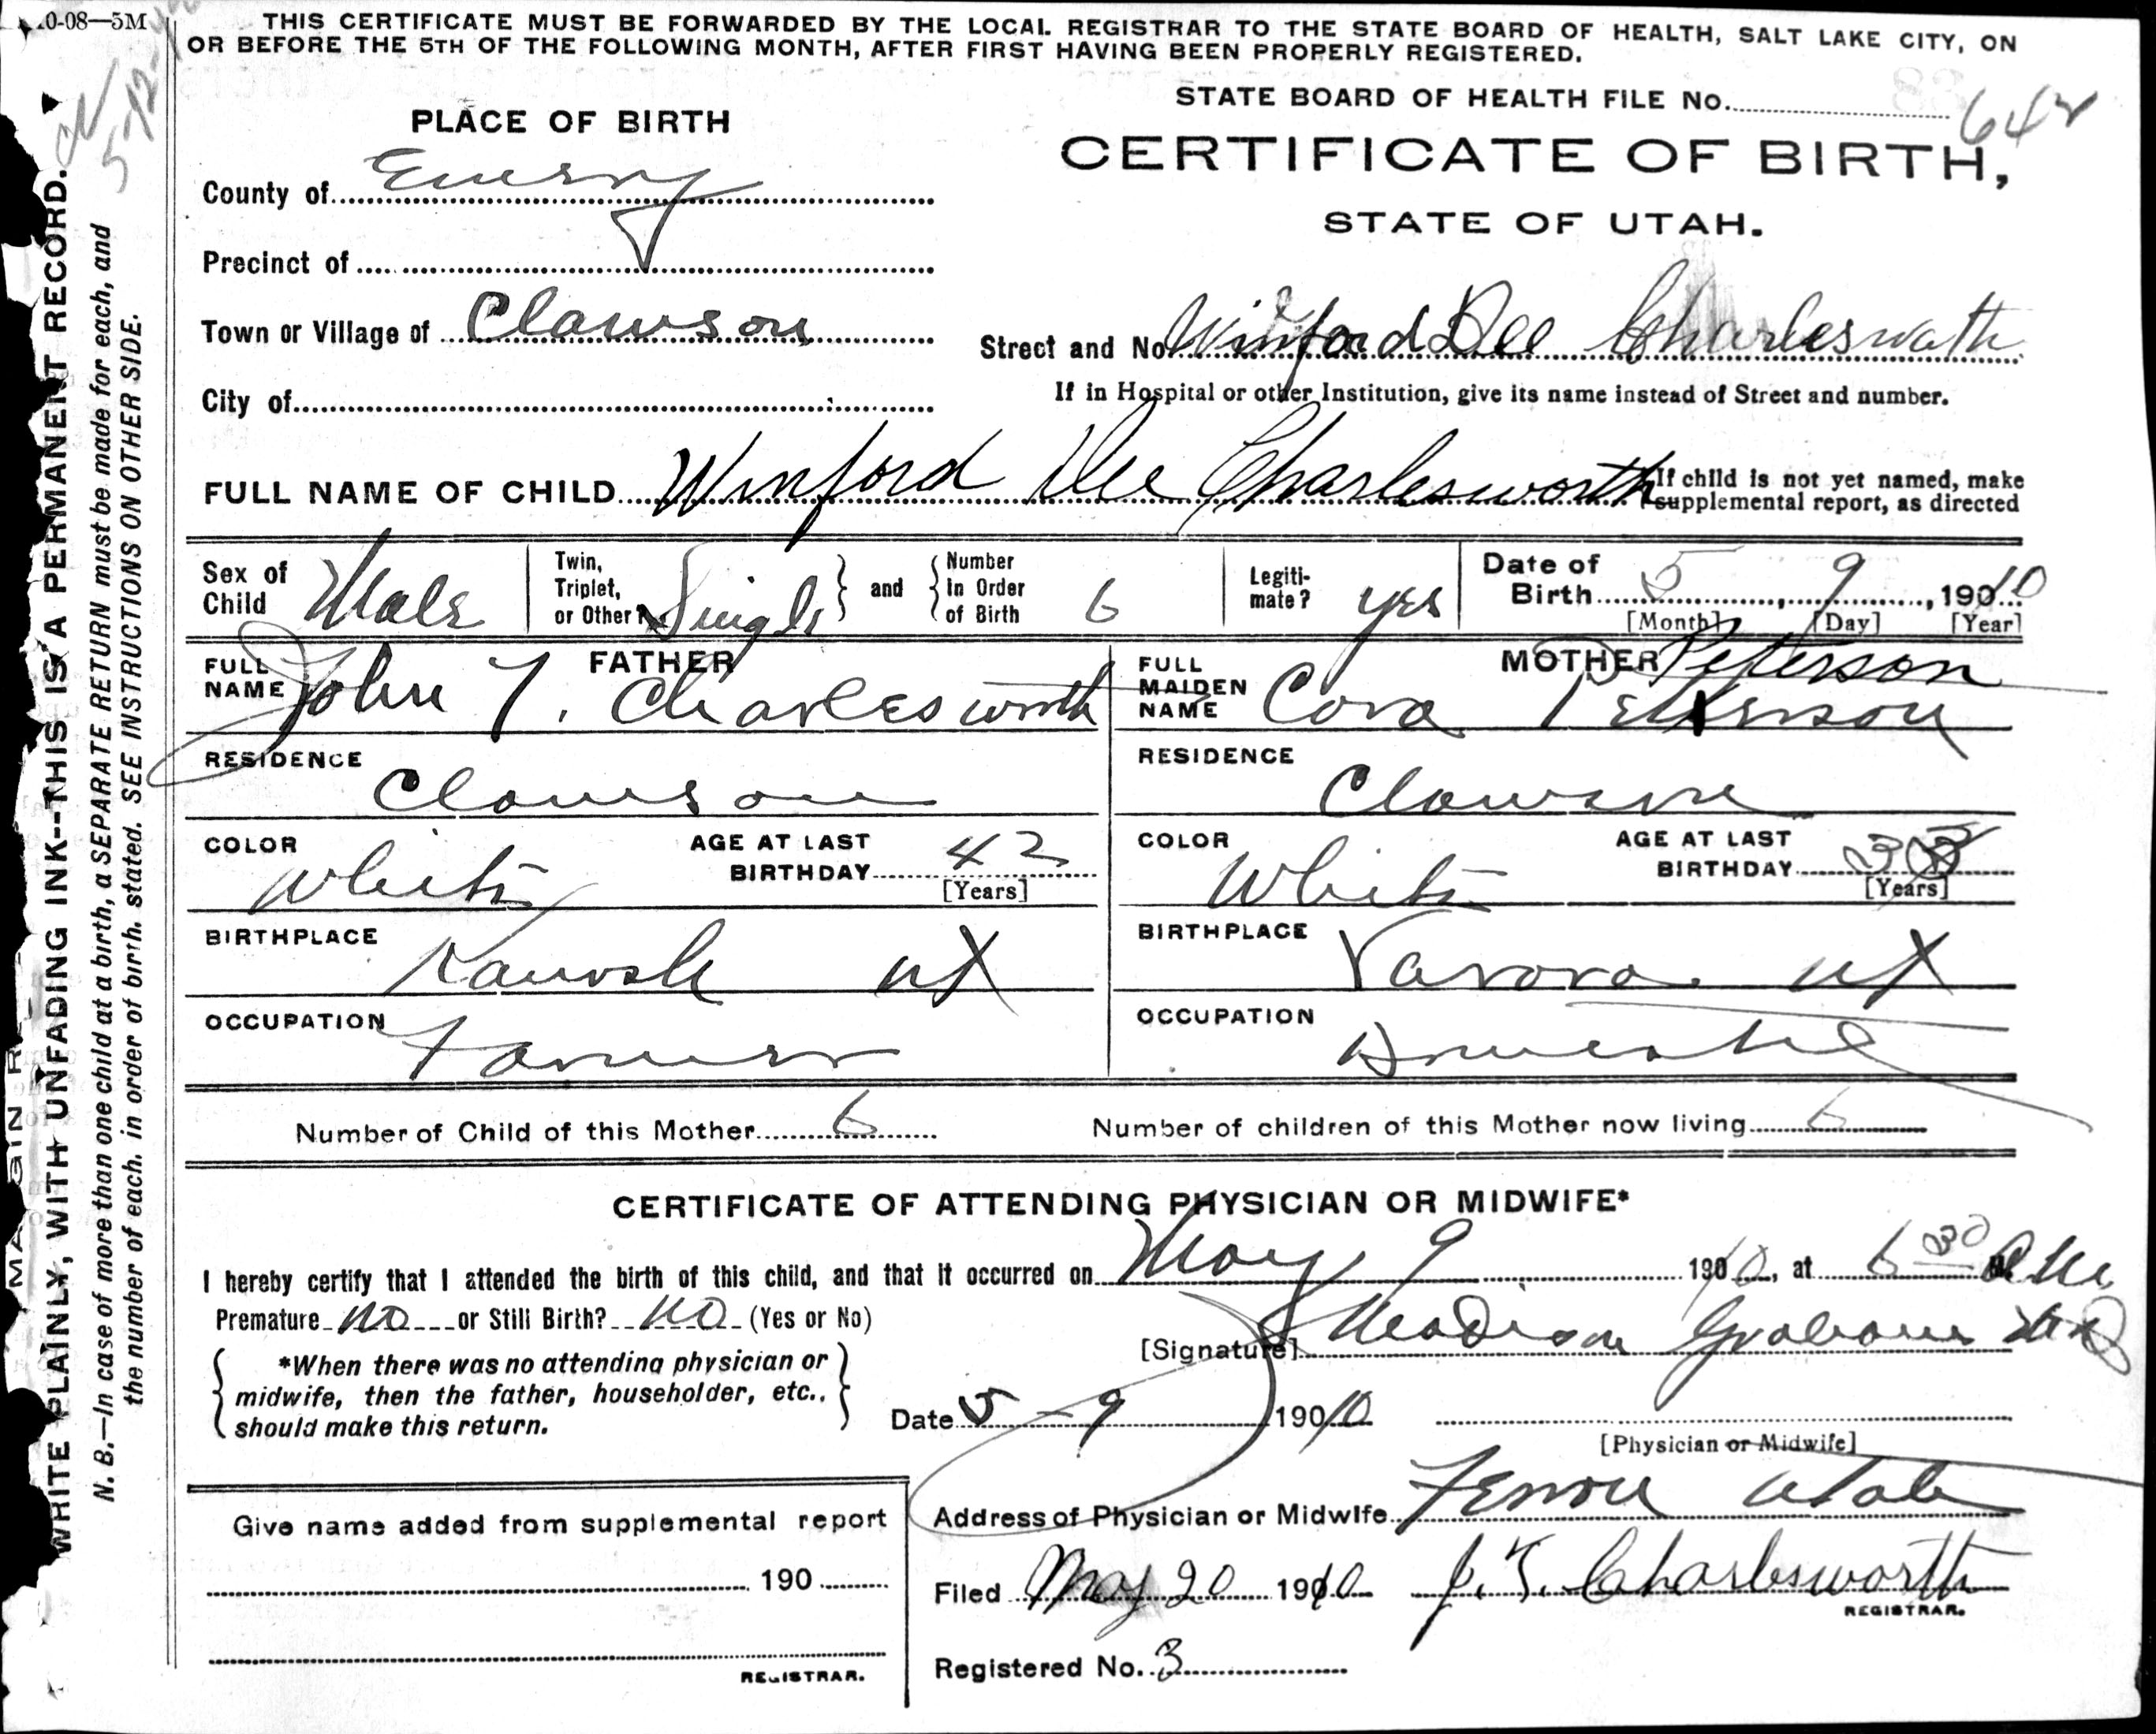 .0-08—5M
THIS CERTIFICATE MUST BE FORWARDED BY THE LOCAL REGISTRAR TO THE STATE BOARD OF HEALTH, SALT LAKE CITY, ON
OR BEFORE THE 5TH OF THE FOLLOWING MONTH, AFTER FIRST HAVING BEEN PROPERLY REGISTERED.
5-12-
STATE BOARD OF HEALTH FILE No. 642
PLACE OF BIRTH
CERTIFICATE OF BIRTH,
STATE OF UTAH.
County of Emery
Precinct of
Town or Village of Clawson
Street and No. Winford Dee Charlesworth
City of
If in Hospital or other Institution, give its name instead of Street and number.
FULL NAME OF CHILD Winford Dee Charlesworth
If child is not yet named, make
supplemental report, as directed
Sex of Child Male
Twin, Triplet, or Other? Single and Number in Order of Birth 6
Legitimate? yes
Date of Birth 5, 9, 1910
[Month] [Day] [Year]
FATHER
FULL NAME John T. Charlesworth
MOTHER Peterson
FULL MAIDEN NAME Cora Peterson
RESIDENCE Clawson
RESIDENCE Clawson
COLOR White AGE AT LAST BIRTHDAY 42 [Years]
COLOR White AGE AT LAST BIRTHDAY [Years]
BIRTHPLACE Kanosh UT
BIRTHPLACE UT
OCCUPATION Farmer
OCCUPATION Domestic
Number of Child of this Mother 6
Number of children of this Mother now living 6
CERTIFICATE OF ATTENDING PHYSICIAN OR MIDWIFE*
I hereby certify that I attended the birth of this child, and that it occurred on May 9 1910, at 6 30 A.M.
Premature no or Still Birth? no (Yes or No)
[Signature] Madison Graham MD
*When there was no attending physician or
midwife, then the father, householder, etc.,
should make this return.
Date 5-9 1910
[Physician or Midwife]
Address of Physician or Midwife Ferron Utah
Give name added from supplemental report
190
REGISTRAR.
Filed May 20 1910 J. T. Charlesworth
REGISTRAR.
Registered No. 3
WRITE PLAINLY, WITH UNFADING INK--THIS IS A PERMANENT RECORD.
N. B.—In case of more than one child at a birth, a SEPARATE RETURN must be made for each, and
the number of each. in order of birth. stated. SEE INSTRUCTIONS ON OTHER SIDE.